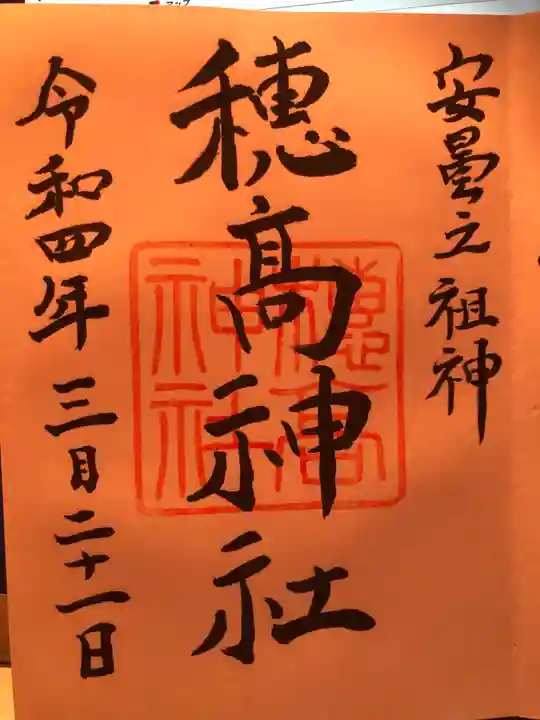 安曇之祖神
穂髙神社
穂髙
神社
令和四年三月二十一日
マップ